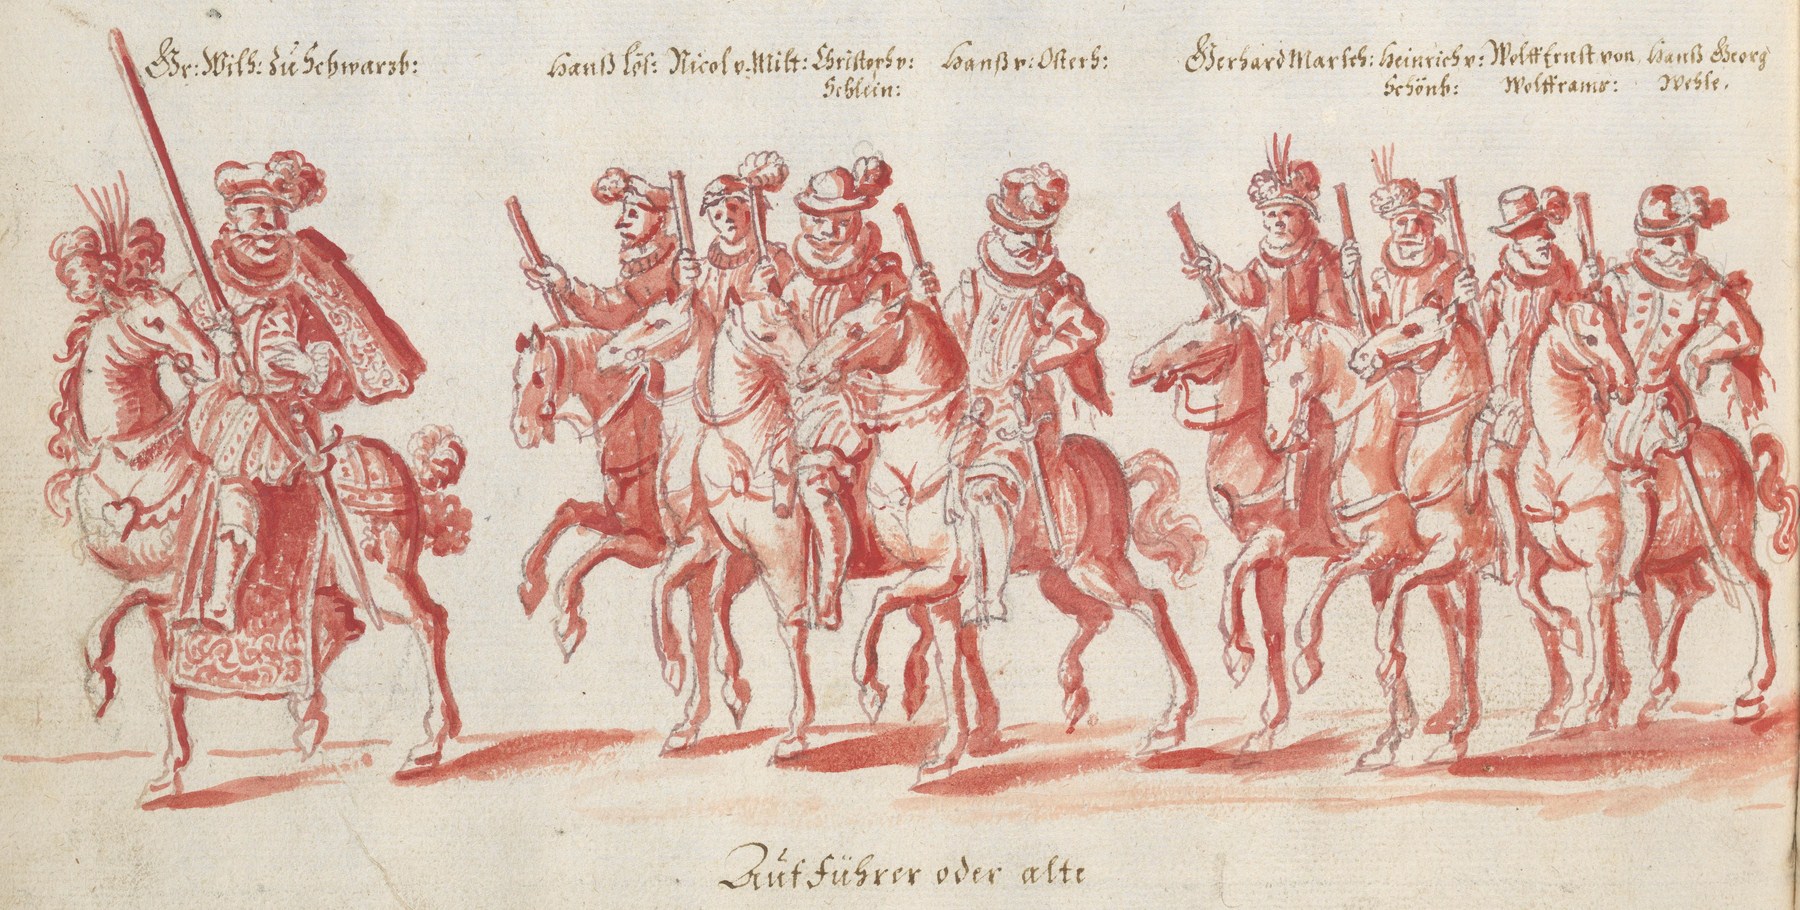 Gr: Wilh: zu Schwarzb:
Hanß Lös: Nicol v. Milt: Christoph v: Hanß v: Osterh:
Schlein:
Gerhard Marsch: Heinrich v: Wolff Ernst von Hanß Georg
Schönb: Wolfframs: Wehse.
Auf führer oder alte